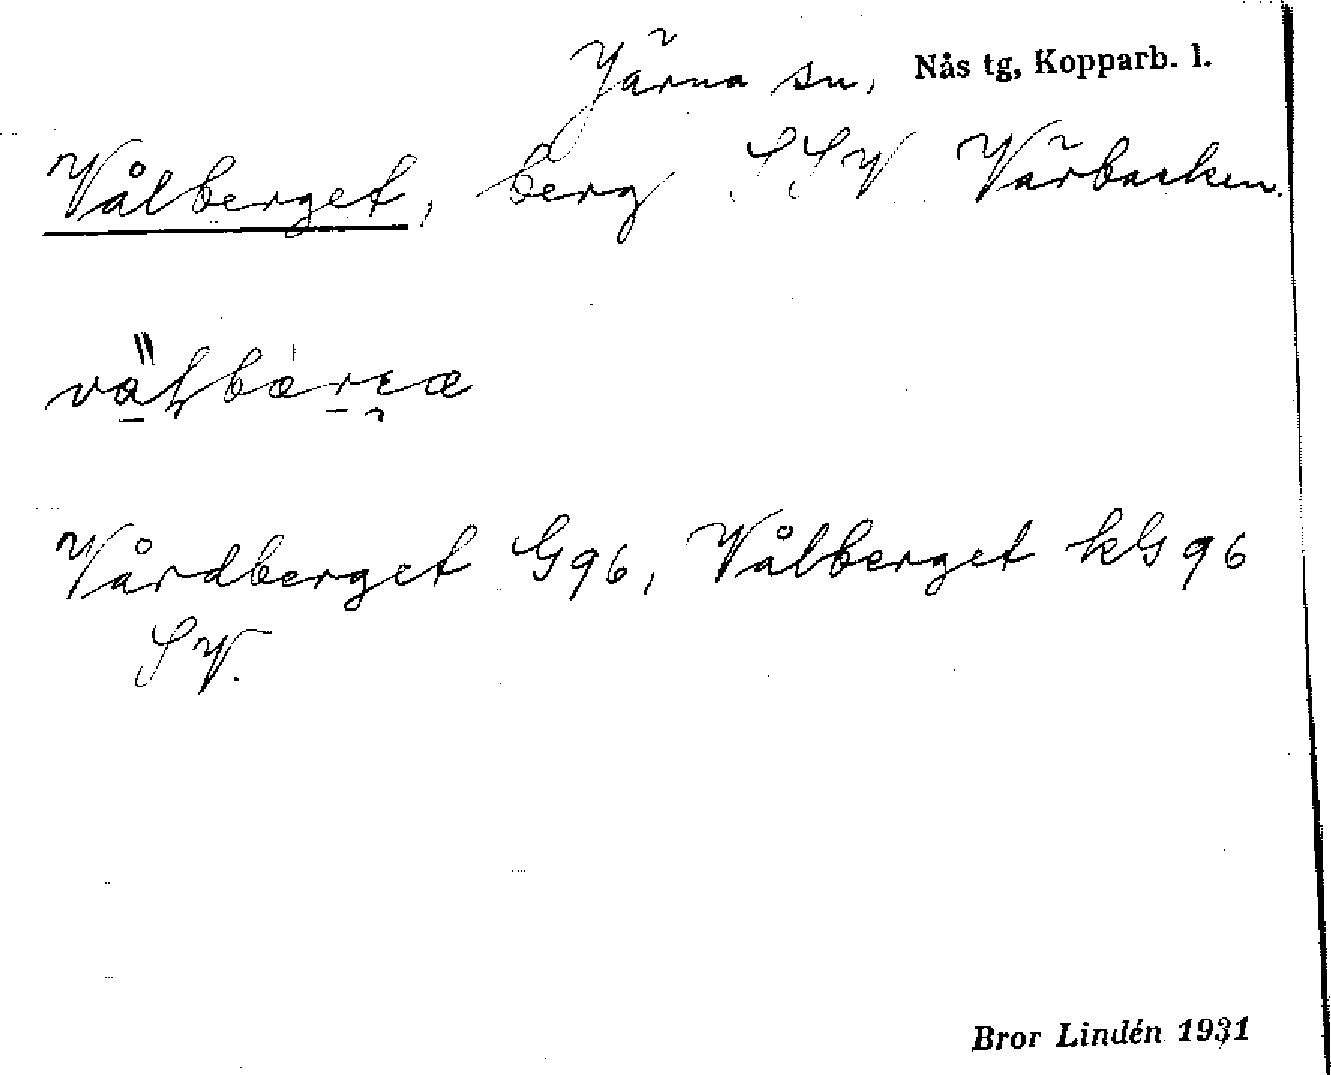 Järna sn, Nås tg, Kopparb. l.
Vålberget, berg SSV Vårbacken.
Vårdberget G96, Vålberget kG96
SV.
Bror Lindén 1931